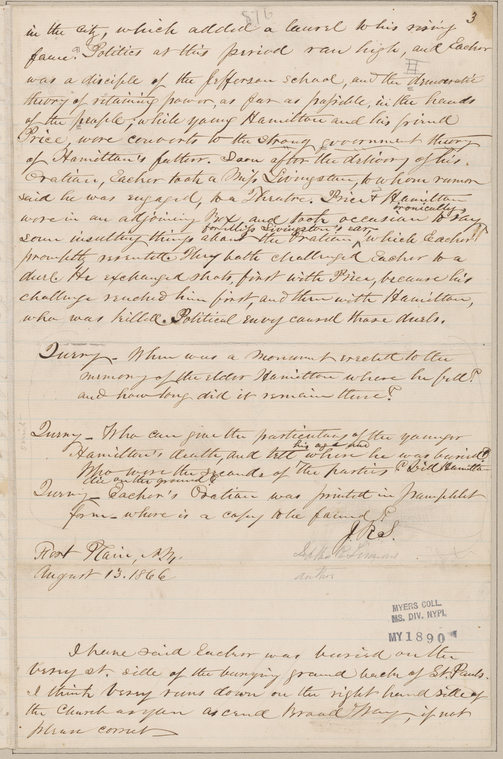 816
3
in the city, which added a laurel to his rising
fame. Politics at this period ran high, and Eacher
was a disciple of the Jefferson school, and the democratic
theory of retaining power, as far as possible, in the hands
of the people; while young Hamilton and his friend
Price, were converts to the strong government theory
of Hamilton's father. Soon after the delivery of his
Oration, Eacher took a Miss Livingston, to whom rumor
said he was engaged, to a Theatre. Price & Hamilton
ironically
were in an adjoining Box, and took occasion to say
for Miss Livingston's ear
some insulting things about the Oration, which Eacher
promptly resented. They both challenged Eacher to a
duel. He exchanged shots, first with Price, because his
challenge reached him first, and then with Hamilton,
who was killed. Political envy caused those duels.
Query – When was a monument erected to the
memory of the elder Hamilton where he fell?
and how long did it remain there?
Query – Who can give the particulars of the younger
his age and
Hamilton's death, and tell where he was buried?
Who were the seconds of the parties? Did Hamilton
die on the ground?
Query – Eacher's Oration was printed in pamphlet
form – where is a copy to be found?
J. R. S.
Fort Plain, N.Y.
August 13. 1866
author
MYERS COLL.
MS. DIV. NYPL.
MY 1890
I have said Eacher was buried on the
Vesey st. side of the burying ground back of St. Pauls.
I think Vesey runs down on the right hand side of
the Church as you ascend Broad Way, if not
please correct